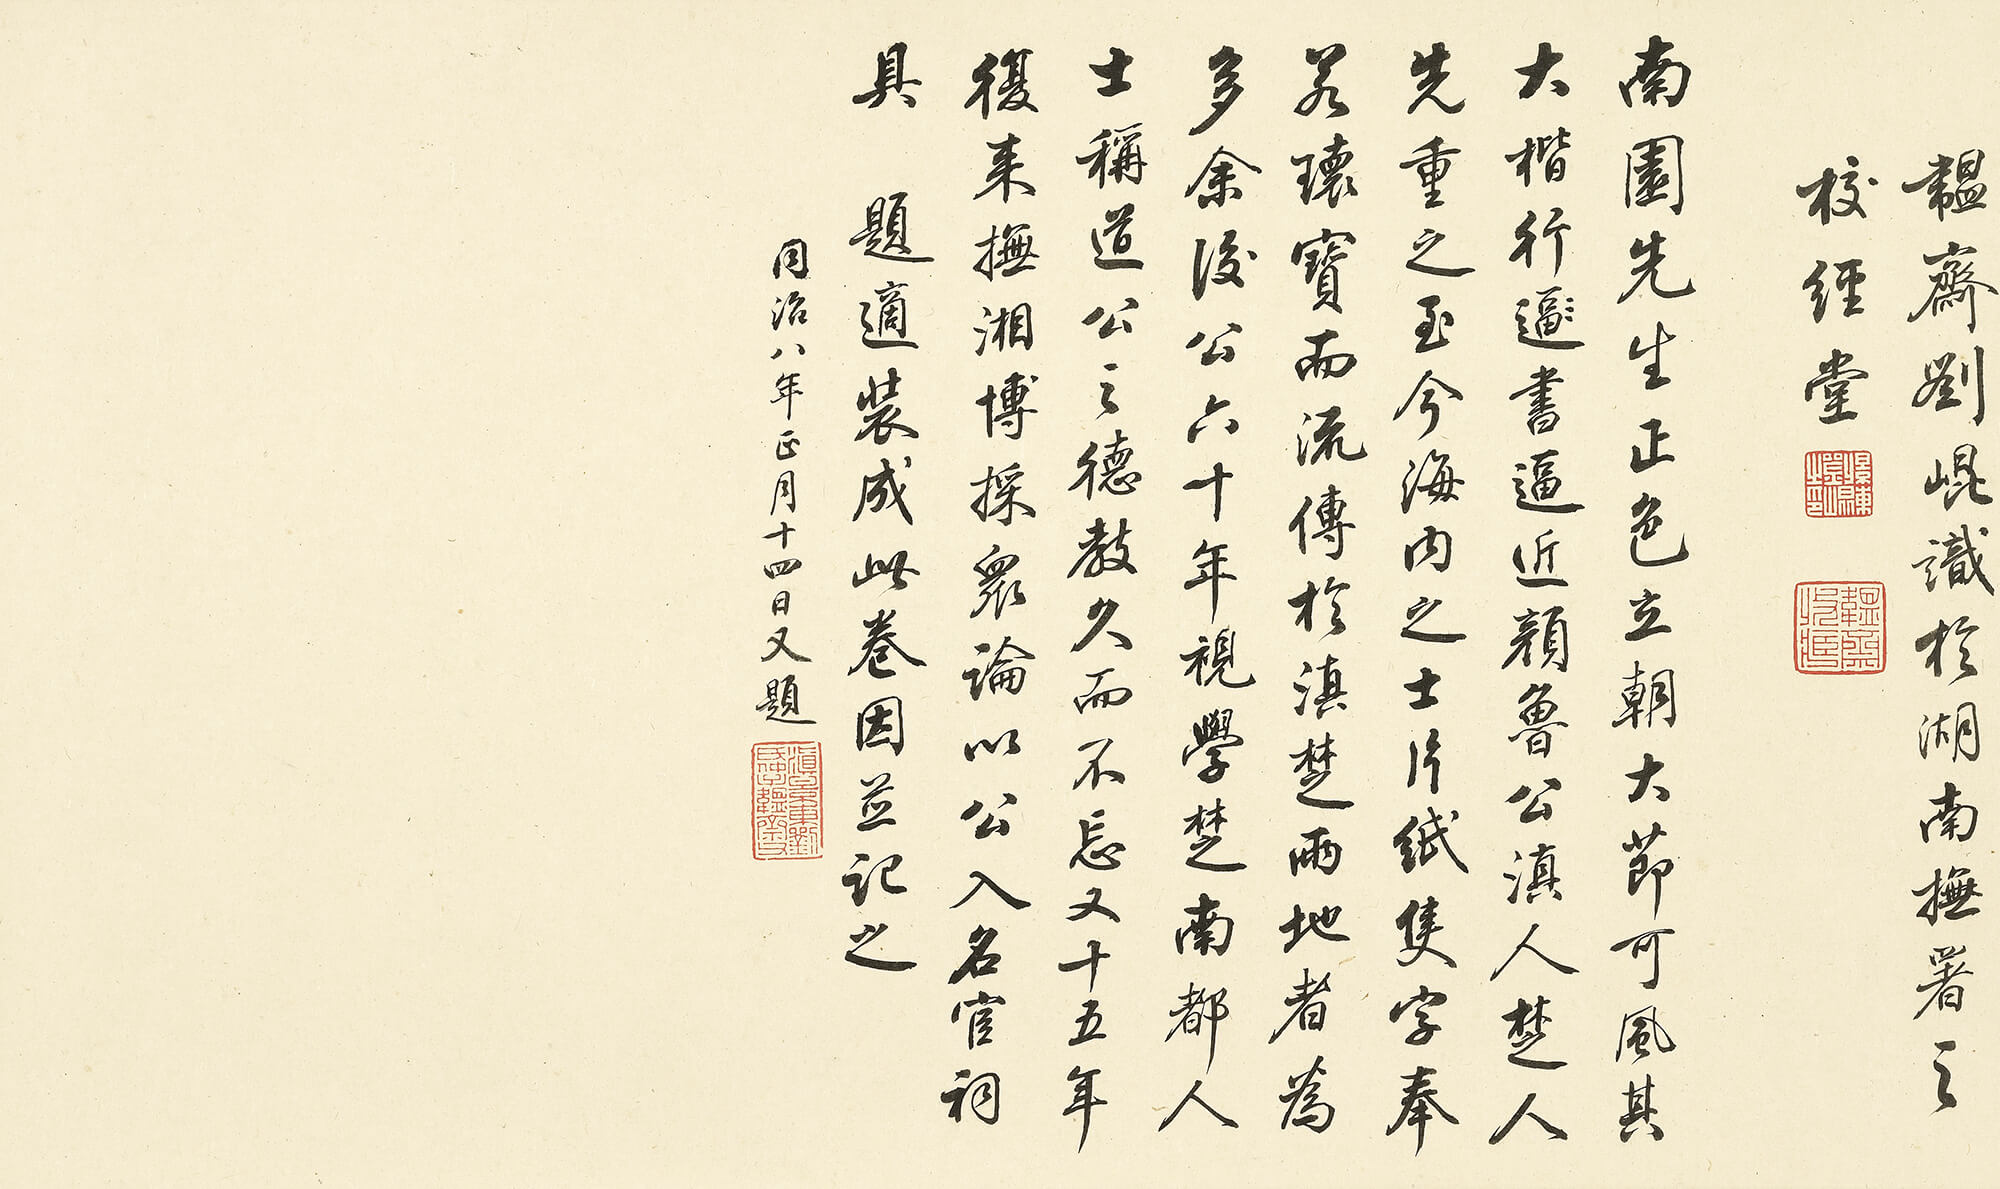 韞齋劉崐識於湖南撫署之
校經堂
南園先生正色立朝大節可風其
大楷行逼書逼近顏魯公滇人楚人
先重之至今海内之士片紙隻字奉
若瓌寶而流傳於滇楚兩地者為
多余後公六十年視學楚南都人
士稱道公之德教久而不忘又十五年
復来撫湘博採眾論以公入名宦祠
具 題適裝成此卷因並記之
同治八年正月十四日又題